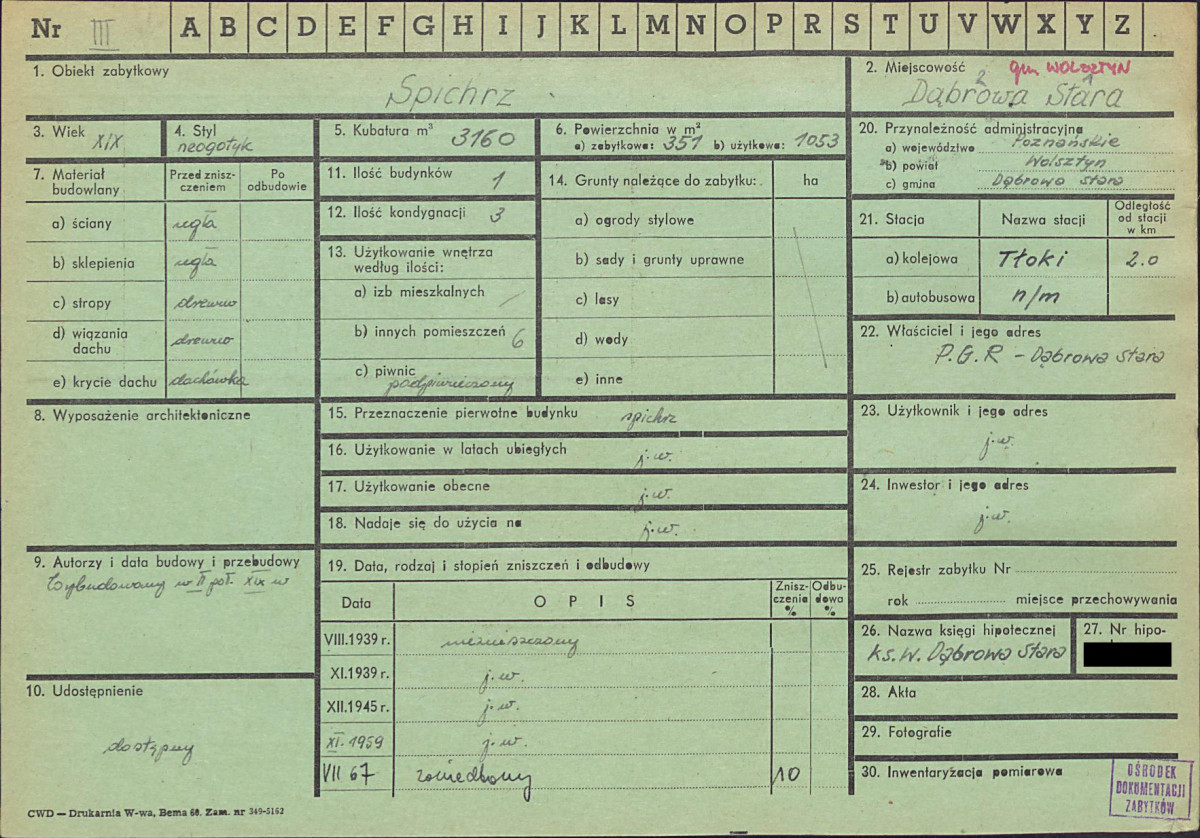 Nr III A B C D E F G H I J K L M N O P R S T U V W X Y Z
1. Obiekt zabytkowy
Spichrz
2. Miejscowość gm WOLSZTYN
2 1
Dąbrowa Stara
3. Wiek
XIX
4. Styl
neogotyk
5. Kubatura m³ 3160
6. Powierzchnia w m²
a) zabytkowa: 351 b) użytkowa: 1053
20. Przynależność administracyjna
a) województwo Poznańskie
b) powiat Wolsztyn
c) gmina Dąbrowa Stara
7. Materiał budowlany
Przed zniszczeniem
Po odbudowie
a) ściany cegła
b) sklepienia cegła
c) stropy drewno
d) wiązania dachu drewno
e) krycie dachu dachówka
11. Ilość budynków 1
12. Ilość kondygnacji 3
13. Użytkowanie wnętrza
według ilości:
a) izb mieszkalnych /
b) innych pomieszczeń 6
c) piwnic
podpiwniczony
14. Grunty należące do zabytku: ha
a) ogrody stylowe
b) sady i grunty uprawne
c) lasy
d) wody
e) inne
21. Stacja Nazwa stacji
Odległość
od stacji
w km
a) kolejowa Tłoki 2.0
b) autobusowa n/m
22. Właściciel i jego adres
P.G.R - Dąbrowa Stara
8. Wyposażenie architektoniczne
15. Przeznaczenie pierwotne budynku spichrz
16. Użytkowanie w latach ubiegłych j.w.
17. Użytkowanie obecne j.w.
18. Nadaje się do użycia na j.w.
23. Użytkownik i jego adres
j.w.
24. Inwestor i jego adres
j.w.
9. Autorzy i data budowy i przebudowy
Wybudowany w II poł. XIX w
19. Data, rodzaj i stopień zniszczeń i odbudowy
Data
OPIS
Zniszczenia %
Odbudowa %
VIII.1939 r. niezniszczony
XI.1939 r. j.w.
XII.1945 r. j.w.
XI.1959 j.w.
VII 67 zaniedbany 10
25. Rejestr zabytku Nr
rok miejsce przechowywania
26. Nazwa księgi hipotecznej
ks.w. Dąbrowa Stara
27. Nr hipo-
10. Udostępnienie
dostępny
28. Akta
29. Fotografie
30. Inwentaryzacja pomiarowa
OŚRODEK
DOKUMENTACJI
ZABYTKÓW
CWD — Drukarnia W-wa, Bema 60. Zam. nr 349-5162